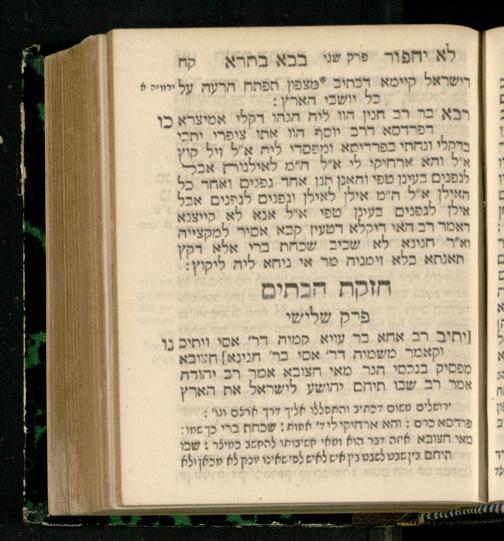 לא יחפור פרק שני בבא בתרא קח
דישראל קיימא דכתיב *מצפון תפתח הרעה על ירמיה א
כל יושבי הארץ :
רבא בר רב חנן הוו ליה הנהו דקלי אמיצרא כו
דפרדסא דרב יוסף הוו אתו ציפרי יתבי
בדקלי ונחתי בפרדיסא ומפסדי ליה א"ל זיל קוץ
א"ל והא ארחיקי לי א"ל ה"מ לאילנות אבל
לגפנים בעינן טפי והאנן תנן אחד גפנים ואחד כל
האילן א"ל ה"מ אילן לאילן וגפנים לגפנים אבל
אילן לגפנים בעינן טפי א"ל אנא לא קייצנא
דאמר רב האי דיקלא דטעין קבא אסיר למקצייה
וא"ר חנינא לא שכיב שכחת ברי אלא דקץ
תאנתא בלא זימניה מר אי ניחא ליה ליקוץ :
חזקת הבתים
פרק שלישי
[יתיב רב אחא בר עויא קמיה דר' אסי ויתיב נו
וקאמר משמיה דר' אסי בר' חנינא] חצובא
מפסיק בנכסי הגר מאי חצובא אמר רב יהודה
אמר רב שבו תיחם יהושע לישראל את הארץ
ירושלים משום דכתיב והתפללו אליך דרך ארצם וגו' :
פרדסא כרם : והא ארחיקי לי ד' אמות : שכחת ברי כך שמו :
מאי חצובא איזה דבר הוא ומאי חשיבותו להחשב כמיצר : שבו
תיחם בין שבט לשבט בין איש לאיש לפי שאינו יונק לא מכאן ולא